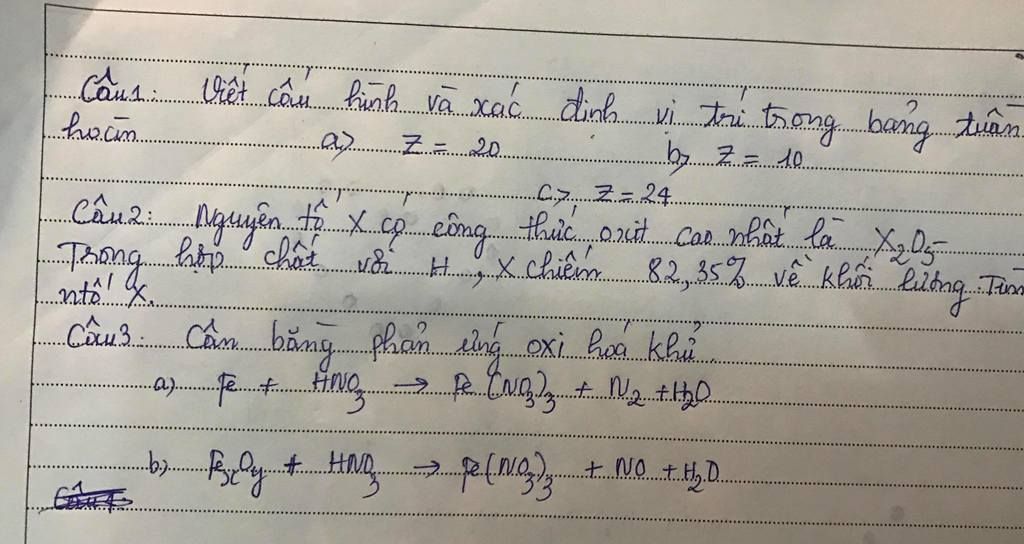 Câu1: Viết cấu hình và xác định vị trí trong bảng tuần
hoàn a> Z = 20 b> Z = 10
c>, Z = 24
Câu2: Nguyên tố X có công thức oxit cao nhất là X₂O₅
Trong hợp chất với H, X chiếm 82,35% về khối lượng. Tìm
ntố X.
Câu3: Cân bằng phản ứng oxi hoá khử
a) Fe + HNO₃ → Fe(NO₃)₃ + N₂ + H₂O
b) FeₓOᵧ + HNO₃ → Fe(NO₃)₃ + NO + H₂O